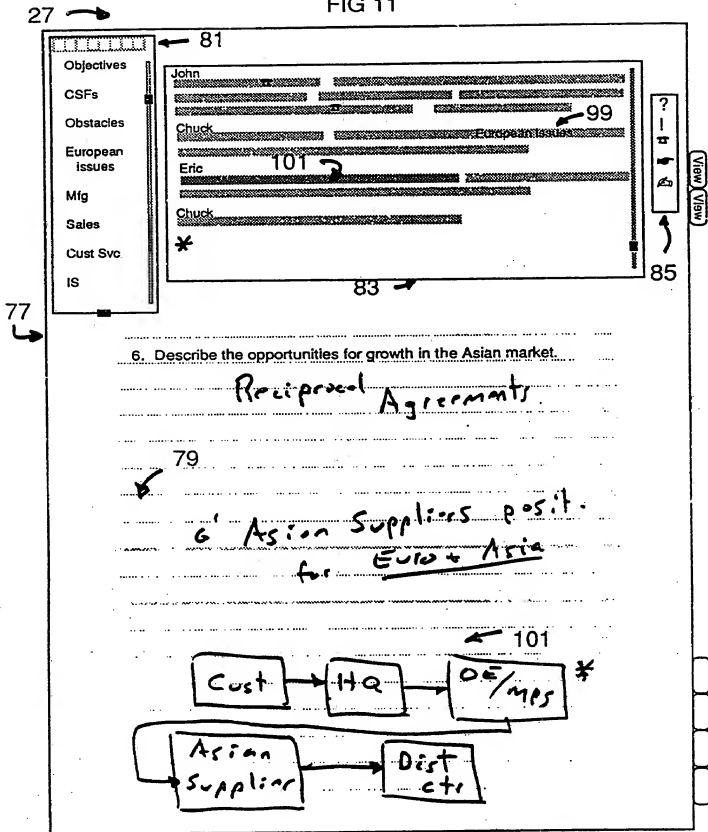 FIG 11
27
81
Objectives
CSFs
Obstacles
European
issues
Mfg
Sales
Cust Svc
IS
John
Chuck
European issues
99
101
Eric
Chuck
*
83
?
85
View
View
77
6. Describe the opportunities for growth in the Asian market.
Reciprocal Agreements
79
6' Asian Suppliers posit.
for Euro + Asia
101
Cust
HQ
OE/MPS
*
Asian
Supplier
Dist
ctr